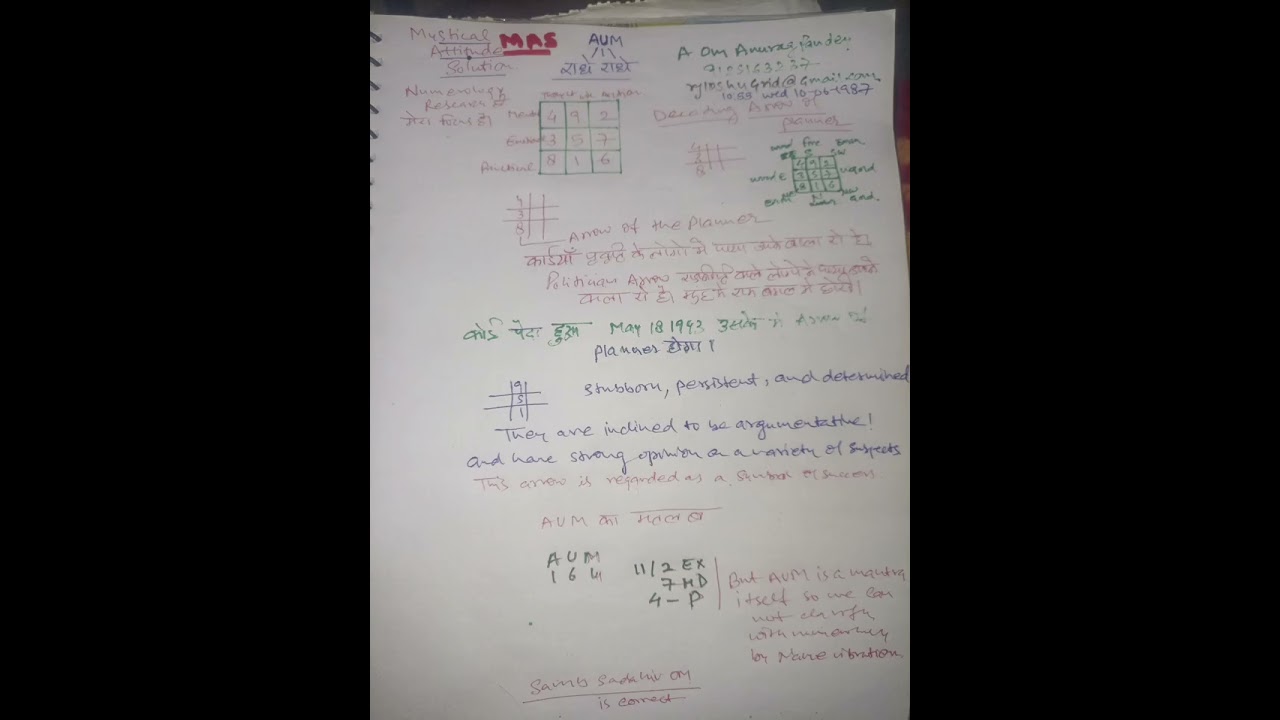 Mystical
Attitude
Solution
MAS
AUM
राधे राधे
A Om Anurag Pandey
ry10shugrid@gmail.com
10:59 wed 10-06-1987
Numerology
Research
मेरा
Decoding Arrow of
planner
4 9 2
3 5 7
8 1 6
Practical
4
3
8
fire
4 9 2
3 5 7
8 1 6
4
3
8
Arrow of the planner
के लोगो मे पाया जाने वाला रो है।
Politician Arrow वाले
वाला रो है। मे राम बगल मे छोरी।
कोई पैदा हुआ May 18 1943 उसके मे Arrow of
planner होगा।
9
5
1
stubborn, persistent, and determined
They are inclined to be argumentative!
and have strong opinion on a variety of suspects
This arrow is regarded as a symbol of success.
AUM का मतलब
A U M
1 6 4
11/2 Ex
7 HD
4 - P
But AUM is a mantra
itself so we can
not clarify
with numerology
by Name vibration
Samb Sadahiv OM
is correct